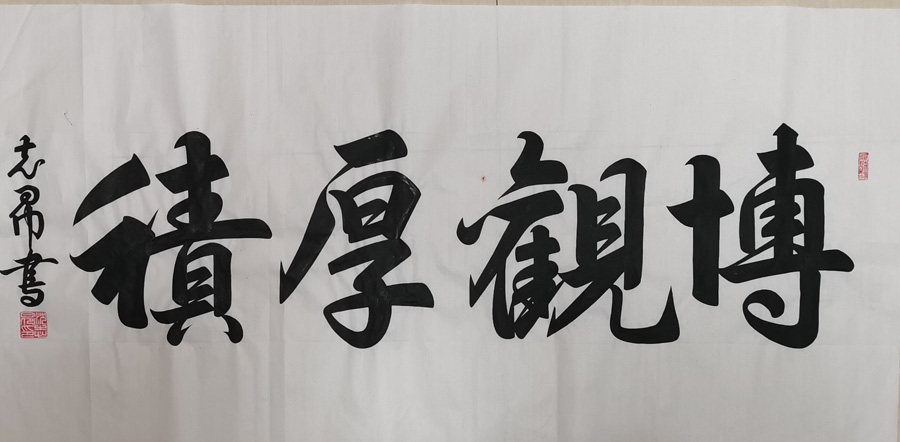 博觀厚積
志帚書